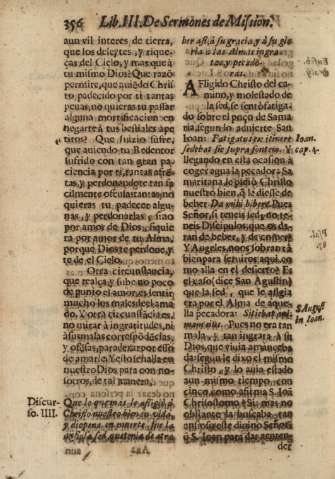 356 Lib. III. De Sermones de Mission.
aun vil interes de tierra,
que los deleytes, y rique-
zas del Cielo, y mas que à
tu mismo Dios? Que razō
permite, que auiēdo Chris-
to padecido por ti tantas
penas, no quieras tu passar
alguna mortificacion en
negarte à tus bestiales ape-
titos? Que juizio sufre,
que auiendo tu Redentor
sufrido con tan gran pa-
ciencia por ti tantas afrē-
tas, y perdonandote tan fa-
cilmente no
quieras tu padecer algu-
nas, y perdonarlas, sino
por amor de Dios, siquie-
ra por amor de tu Alma,
porque Dios te perdone, y
te dè el Cielo.
Otra circunstancia,
que realça, y sube no poco
de punto el amor, es sentir
mucho los males del ama-
do. Y otra circunstancia es,
no mirar à ingratitudes, ni
à sus malas correspōdēcias,
y ofēsas, para dexar por esso
de amarle. Y esto se halla en
nuestro Dios para con no-
sotros, de tal manera.
Discur-
so. IIII.
Que lo que mas le afligiò à
Christo nuestro bien en vida,
y despues en muerte, fue la
aun
ber assi à su gracia, y à su glo-
ria à las Almas ingra-
tas, y pecado-
ras.
AFligido Christo del ca-
mino, y molestado de
la sed, se sentò fatiga-
do sobre el poço de Sama-
ria, segun lo aduierte San
Iuan: Fatigatus ex itinere
sedebat sic supra fontem. Y
llegando en esta ocasion à
coger agua la pecadora Sa-
maritana le pidiò Christo
nuestro bien, q̄ le diesse de
beber. Da mihi bibere. Pues
Señor, si teneis sed, no te-
neis Discipulos, que os da-
ràn de beber, y de comer?
Y Angeles, no os sobrarà à
bien para seruiros aqui, co-
mo allà en el desierto? Es
el caso (dize San Augustin)
que la sed, que le afligia
era por el Alma de aque-
lla pecadora: Pues no era tan
mala, y tan ingrata à su
Dios, que
da, segun le dixo el mismo
Christo, y lo auia estado
aun mismo tiempo con
cinco, como afirma S. Iuan
Chrisostomo? Si; mas no
obstante la buscaba, tan
Señor
S. Iuan para dar
der
Ioan.
cap. 4.
S. August.
in Ioan.
Aa2